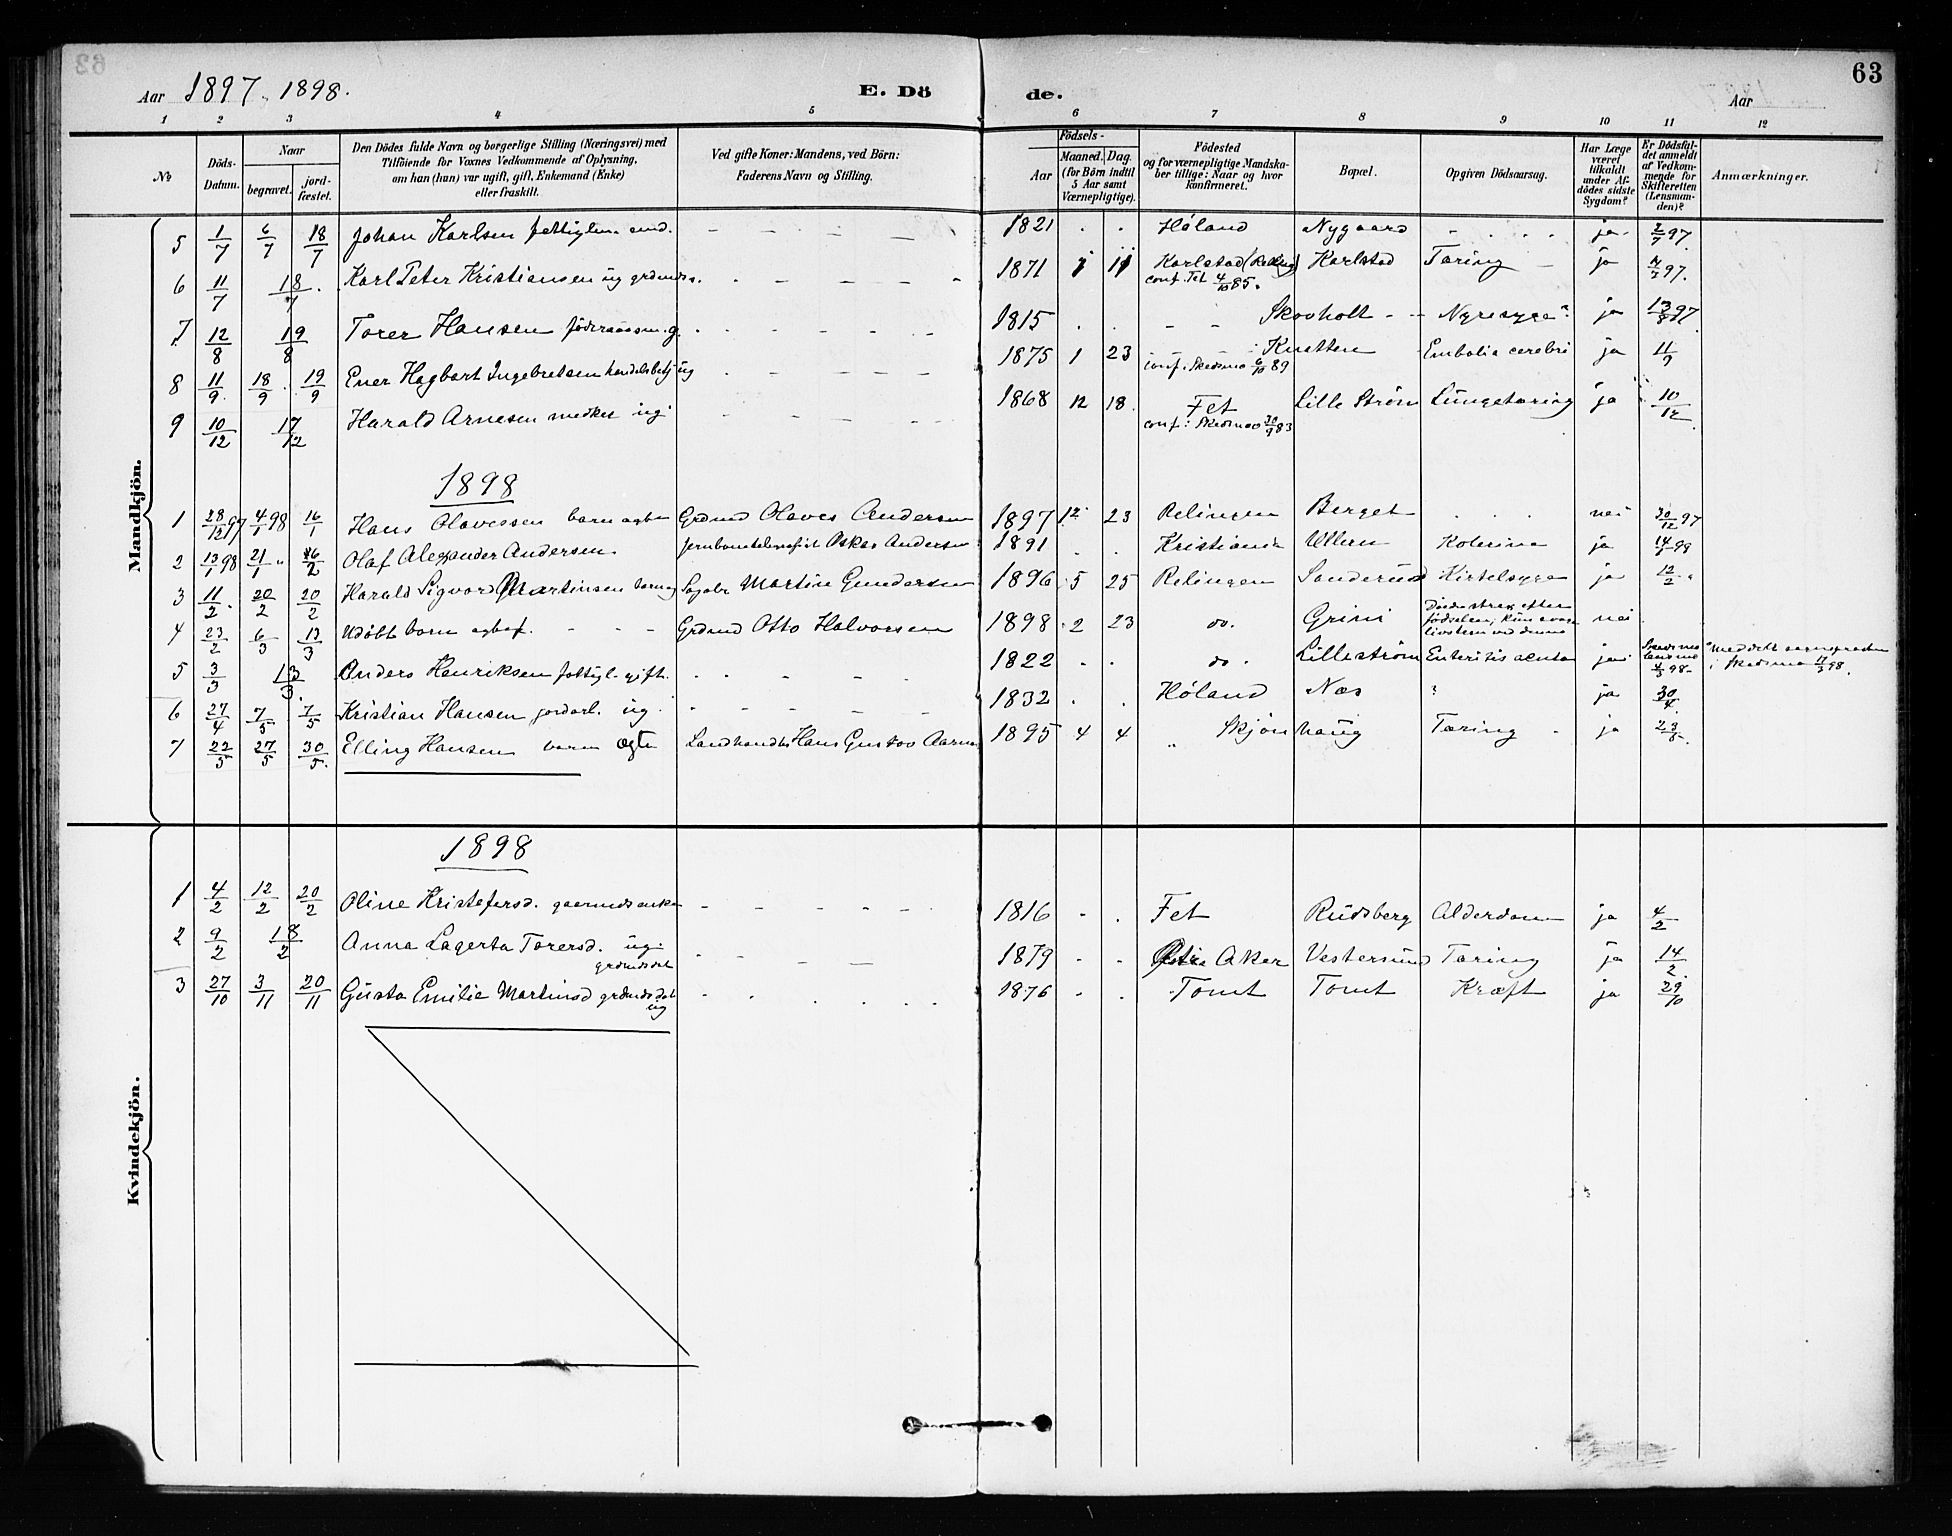 63
Aar 1897. 1898.
E. Dö
de.
Aar
1 2 3 4 5 6 7 8 9 10 11 12
No
Döds-Datum.
Naar
begravet.
jord-fæstet.
Den Dödes fulde Navn og borgerlige Stilling (Næringsvei) med
Tilföiende for Voxnes Vedkommende af Oplysning,
om han (hun) var ugift, gift, Enkemand (Enke)
eller fraskilt.
Ved gifte Koner: Mandens, ved Börn:
Faderens Navn og Stilling.
Födsels-
Aar
Maaned. Dag.
(for Börn indtil
5 Aar samt
Værnepligtige).
Födested
og for værnepligtige Mandska-
ber tillige: Naar og hvor
konfirmeret.
Bopæl.
Opgiven Dödsaarsag.
Har Læge
været
tilkaldt
under Af-
dödes sidste
Sygdom?
Er Dödsfal-
det anmeldt
af Vedkom-
mende for
Skifteretten
(Lensman-
den)?
Anmærkninger.
Mandkjön.
5 1/7 6/7 18/7 Johan Karlsen fattiglem - - - - - 1821 . . Høland Nygaard - . . . ja 2/7 97.
6 11/7 18/7 Karl Peter Kristiansen ug grdmds. - - - - - 1871 11 Karlstad Karlstad Tæring - ja 97.
conf. Fet 4/10 85.
7 12/8 19/8 Torer Hansen føderaadsm. g. - - - - - 1815 . . - - Skovholt - - Nyresyge ja 13/8 97
8 11/9 18/9 19/9 Ener Hagbart Ingebretsen handelsbetj ug - - - - - 1875 1 23 Knatten Embolia cerebri ja 11/9
conf. Skedsmo 6/10 89
9 10/12 17/12 Harald Arnesen ug - - - - 1868 12 18 Fet Lille Strøm Lungetæring ja 10/12
conf: Skedsmo 30/9 83
1898
1 28/12 97 4/1 98 16/1 Hans Olavessen barn ægte Grdmd Olaves Andersen 1897 12 23 Relingen Berget . . . nei 30/12 97
2 13/1 98 21/1 " 16/2 Olaf Alexander Andersen. Oskar Andersen 1891 . . Kristiania Ullern Kolerine ja 14/1 98
3 11/2 20/2 20/2 Harald Sigvard Martinsen barn Martin Gundersen 1896 5 25 Relingen Sanderud Kirtelsyge ja 12/2
4 23/2 6/3 13/3 Udøbt barn - - - Grdmd Otto Halvorsen 1898 2 23 do. Grini Døde strax efter fødselen; nei
5 3/3 13/3 Anders Henriksen fattigl. gift. - - - - 1822 . . do. Lillestrøm Enteritis acuta ja 4/3 98 Meddelt sognepresten
i Skedsmo 17/3 98.
6 27/4 7/5 7/5 Kristian Hansen, jordarb. ug. - - - - - 1832 . . Høland Næs ? ja 30/4
7 22/5 27/5 30/5 Elling Hansen barn ægte Landhandler Hans Gustav Aarnes 1895 4 4 " Skjønhaug Tæring - ja 23/5
Kvindekjön.
1898
1 4/2 12/2 20/2 Oline Kristofersd. gaarmdsenke - - - - - 1816 - . Fet Rudsberg Alderdom ja 4/2
2 9/2 18/2 Anna Lagerta Torersd. ug. - - - - 1879 - - Aker Vestersund Tæring ja 14/2
grdmdsdat
3 27/10 3/11 20/11 Gusta Emilie Martinsd grdmdsdat - . . . . . 1876 - . Tomt Tomt Kræft ja 29/10
ug